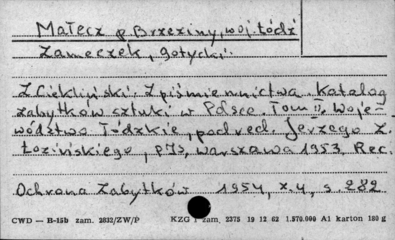 Małecz p. Brzeziny, woj. Łódź
Zameczek, gotycki.
Z. Ciekliński. Z piśmiennictwa. Katalog
zabytków sztuki w Polsce. Tom II, Woje-
wództwo Łódzkie, pod red. Jerzego Z.
Łozińskiego, PIS, Warszawa 1953. Rec.
Ochrona Zabytków 1954, z. 4, s. 282
CWD — B-15b zam. 2832/ZW/P KZG 1 zam. 2375 19 12 62 1.970.000 A1 karton 180 g